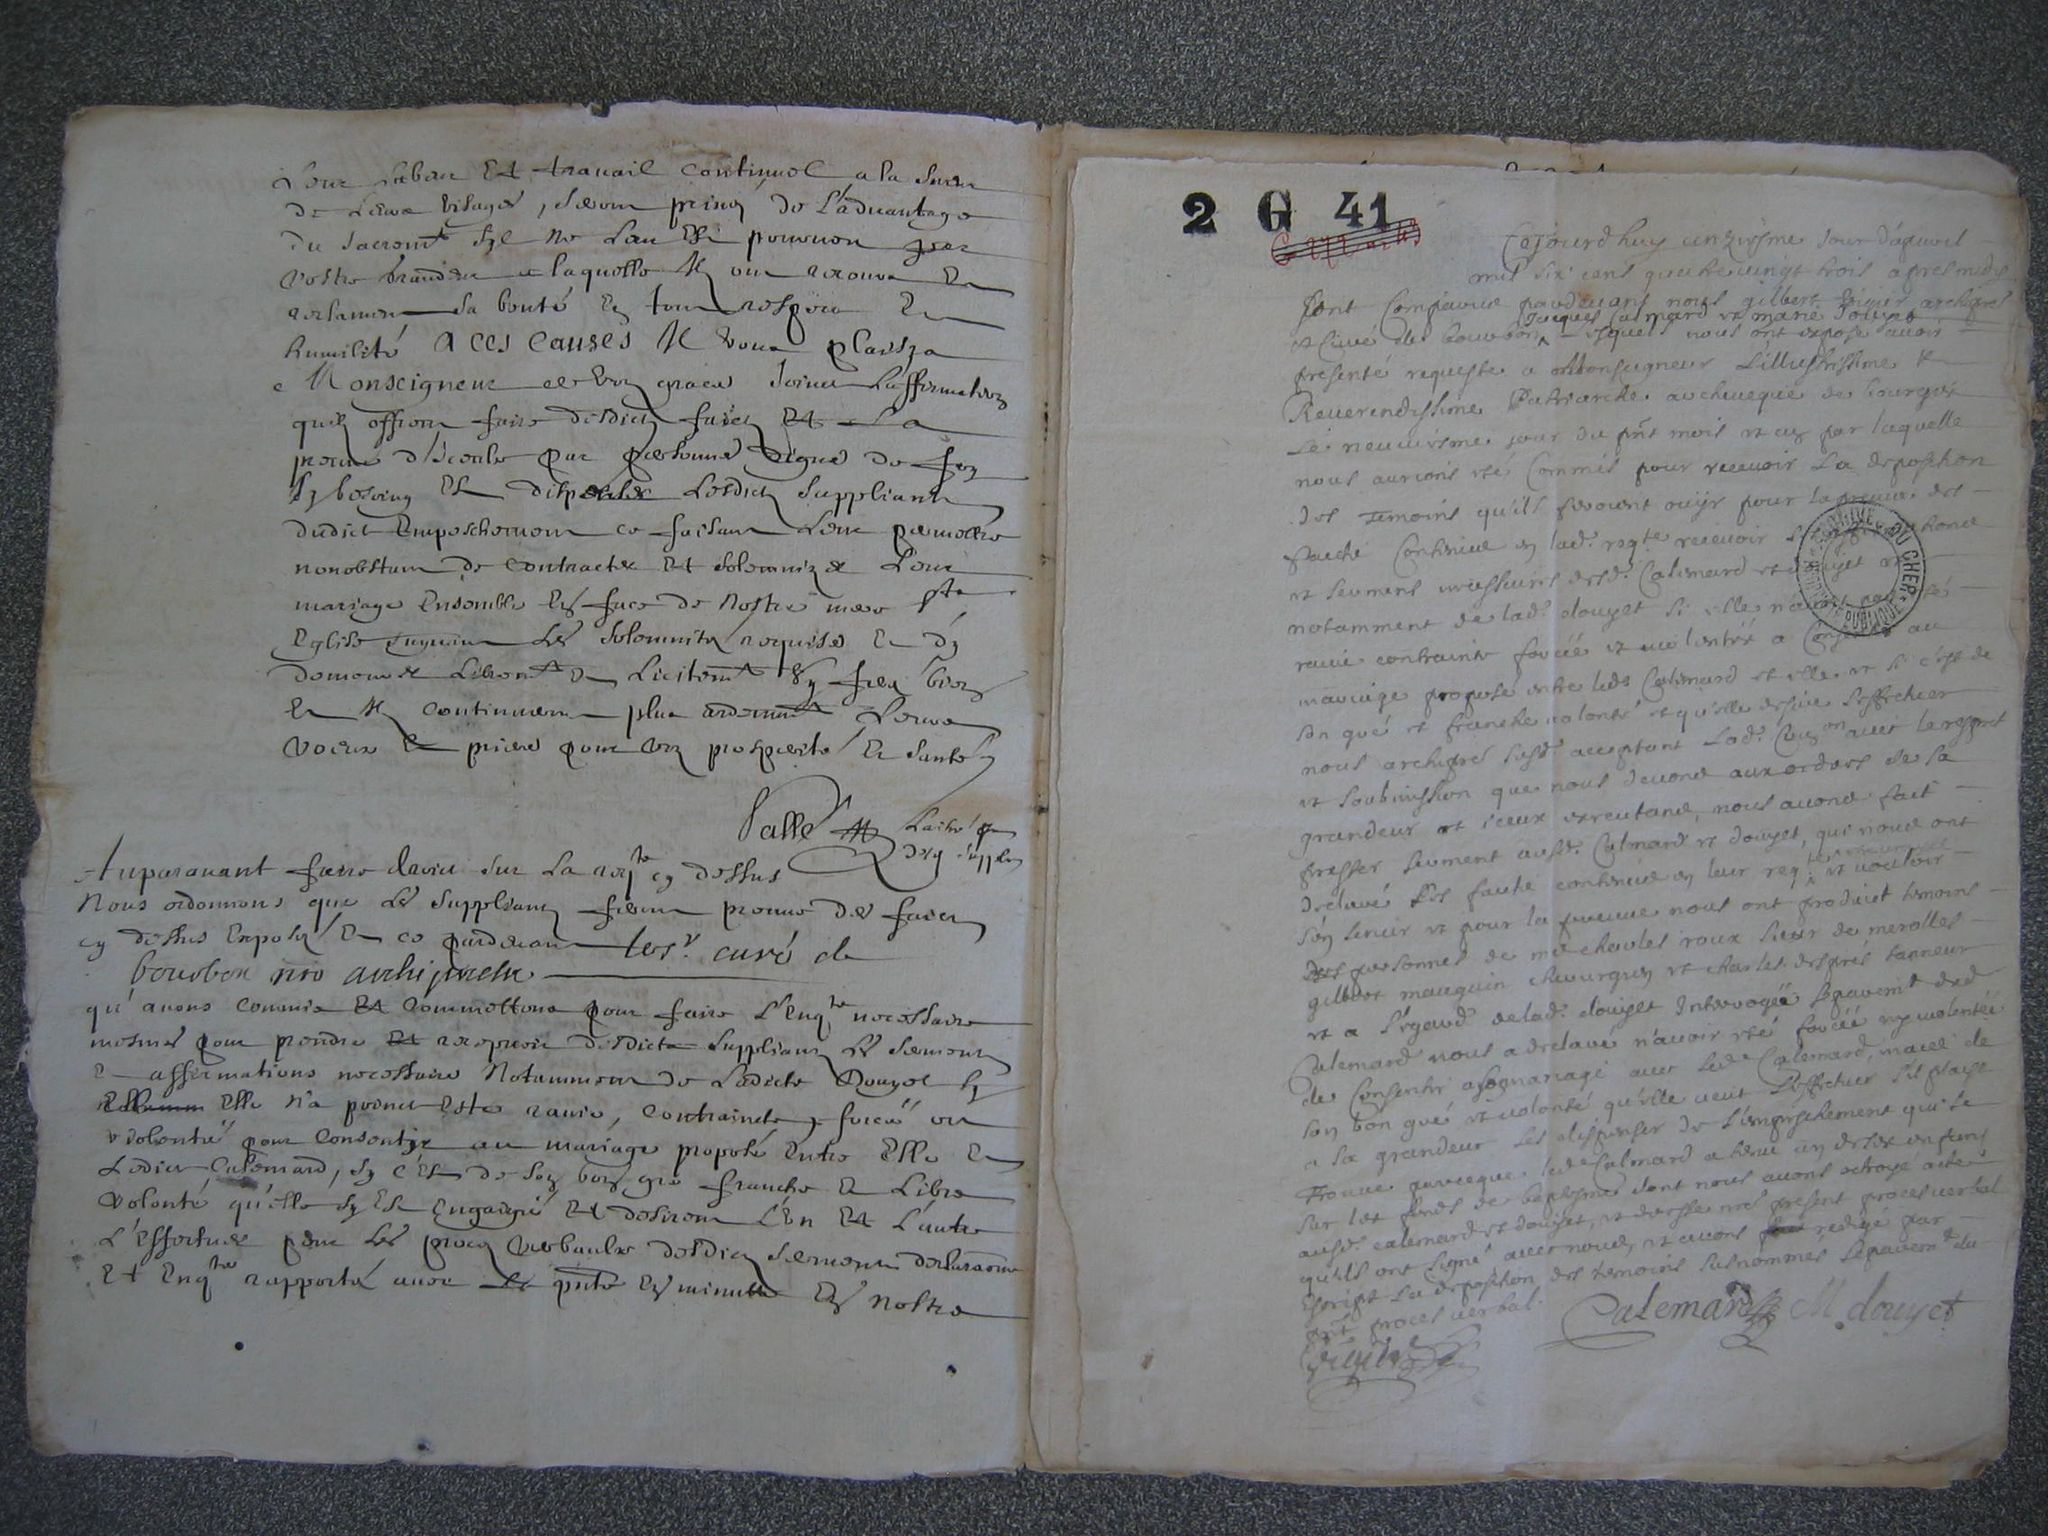 Leur labeur Et travail continuel a la sueur
de Leurs visages, seront privez de L'aduantage
du sacremt syl ne Leur Est pourueu par
vostre grandeur a laquelle Ilz ont recours Et
reclament sa bonté En tout respect Et
humilité A CES CAUSES Il vous plaise
Monseigneur de voz graces Joinct Laffirmation
quilz offrent faire desdictz faictz Et La
preuue d'Iceulx par personnes dignes de foy
sy besoing Est dispenser Lesdictz suppliantz
dudict Empeschement ce faisant Leur permettre
nonobstant de contracter Et solemnizer Leur
mariage Ensemble En face de nostre mere ste
Eglise les solemnitez requises Et dy
demourer Librement Et Licitemt sy ferez bien
Et Ilz continueront plus ardemmt Leurs
voeux Et prieres pour voz prosperité Et santé
Sallé
desd. supplians
Auparauant faire droict sur La reqte cy dessus
Nous ordonnons que Les suppliantz feront preuue des faictz
cy dessus Exposéz Et ce pardeuant curé de
bourbon nro archiprestre
qu'auons commis Et commettons pour faire L'Enqte necessaire
mesmes pour prendre Et receuoir desdicts suppliantz Les serments
Et affirmations necessaires Notamment de Ladicte Douyet sy
Elle n'a poinct Esté rauie, contraincte, forcée ou
violentée pour consentir au mariage proposé Entre Elle Et
Ledict Calemard, sy c'Est de son bon gré franche Et Libre
volonté qu'elle sy Est Engaigée Et desirent L'un Et L'autre
L'Effectuer pour Les procez verbaulx desdictz serments declarations
Et Enqte rapportés auec Les pntes En minutte En nostre
2 G 41
Cejourdhuy unziesme Jour d'apuril
mil six cens quatre vingt trois apres midy
sont Comparus pardeuant nous gilbert archipret
Jacques Calmard et marie Douyet
et Curé de bourbon esquels nous ont exposé auoir
presenté requeste a Monseigneur L'illustrissime et
Reuerendissime Patriarche archeueque de bourges
Le neuuiesme jour du pnt mois et an par laquelle
nous aurions esté Commis pour receuoir La deposition
des Temoins qu'ils feroient ouyr pour la preuue des
faicts Contenus en lad. reqte receuoir
et serment desd. Calemard et douyet et
notamment de lad. douyet si elle n'auoit pas esté
rauie contrainte forcée et violentée a Consentir au
mariage proposé entre led. Calemard et elle et si c'est de
son gré et franche volonté et qu'elle desire L'effectuer
nous archipré susd. acceptant Lad. Comon auec le respect
et soubmission que nous deuons aux ordres de sa
grandeur et iceux executant, nous auons fait
prester serment ausd. Calmard et douyet, qui nous ont
declaré les faicts contenus en leur reqte et vouloir
s'en seruir et pour la preuue nous ont produict temoins
des personnes de me charles roux sieur de merolles
gilbert mauguin chirurgien et charles després tanneur
et a L'egard de lad. douyet Interrogée separemt dud
Calemard nous a declaré n'auoir esté forcée ny violentée
de Consentir a son mariage auec led. Calemard, mais de
son bon gré et volonté qu'elle veut L'effectuer s'il plaist
a sa grandeur les dispenser de L'empeschement qui se
Trouue parceque led. Calmard a tenu un de ses enfens
sur les fonds de baptesme dont nous auons octroyé acte
ausd. calemard et douyet, et dressé nre present proces verbal
qu'ils ont signé auec nous, et auons redigé par
Escript La deposition des temoins susnommés separemt du
pnt proces verbal.
Calemard M. douyet
ARCHIVES DU CHER